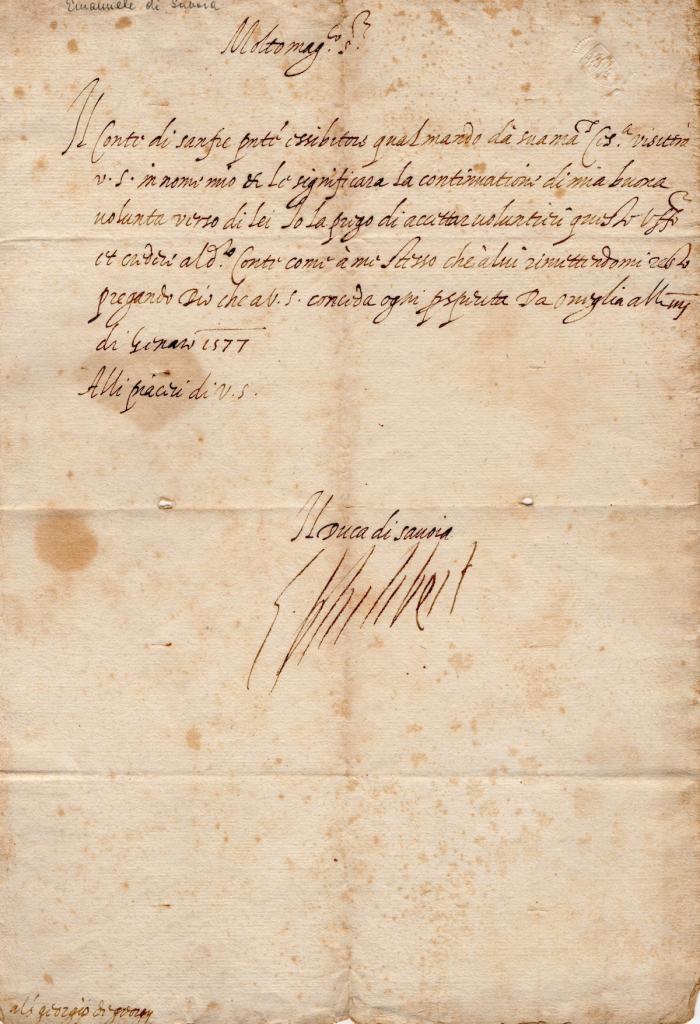 Emanuele di Savoia
Molto mag.co s.r
Il Conte di sanfre pnte essibitore qual mando da sua ma.tà Ces.a visettrà
v. s. in nome mio et le significara la continuatione di mia buona
volunta verso di lei Io la prego di accettar voluntieri questo uff.o
et credere al d.to Conte come à me stesso che à lui rimettendomi resto
pregando Dio che a v. s. conceda ogni psperita Da Oniglia alli iiij
di Genaro 1577
Alli piaceri di v. s.
Il Duca di savoia
E Philibert
al s. georgio